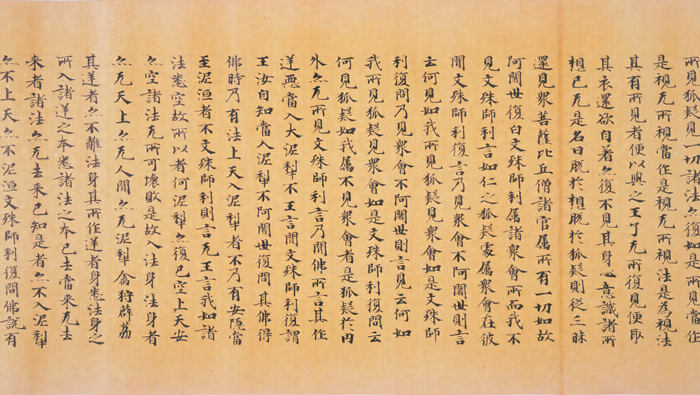 所見狐疑則一切諸法亦復如是所當作
是視无所視當作是視无所視法是為視法
其有所見者便以與之王了无所復見便取
其衣還欲自著亦復不見其身心意識諸所
想已无是名曰脫於想脫於狐疑則從三昧
還見衆菩薩比丘僧諸官屬所有一切如故
阿闍世復白文殊師利屬諸衆會所而我不
見文殊師利言如仁之狐疑處屬衆會在彼
間文殊師利復言乃見衆會不阿闍世則言
云何見如我所見狐疑見衆會如是文殊師
利復問乃見衆會不阿闍世則言見云何如
我所見狐疑見衆會如是文殊師利復問云
何見狐疑如我屬不見衆會者是狐疑於內
外亦无所見文殊師利言乃聞佛所言其作
逆惡當入大泥犁不王言聞文殊師利復謂
王汝自知當入泥犁不阿闍世復問其佛得
佛時乃有法上天入泥犁者不乃有安隱當
至泥洹者不文殊師利則言无王言我如諸
法悉空故所以者何泥犁亦復已空上天安
亦空諸法无所可壞敗是故入法身法身者
亦无天上亦无人間亦无泥犁禽狩薜荔
其逆者亦不離法身其所作逆者身悉法身之
所入諸逆之本悉諸法之本已去當來无去
來者諸法亦无去來已知是者亦不入泥犁
亦不上天亦不泥洹文殊師利復問佛說有